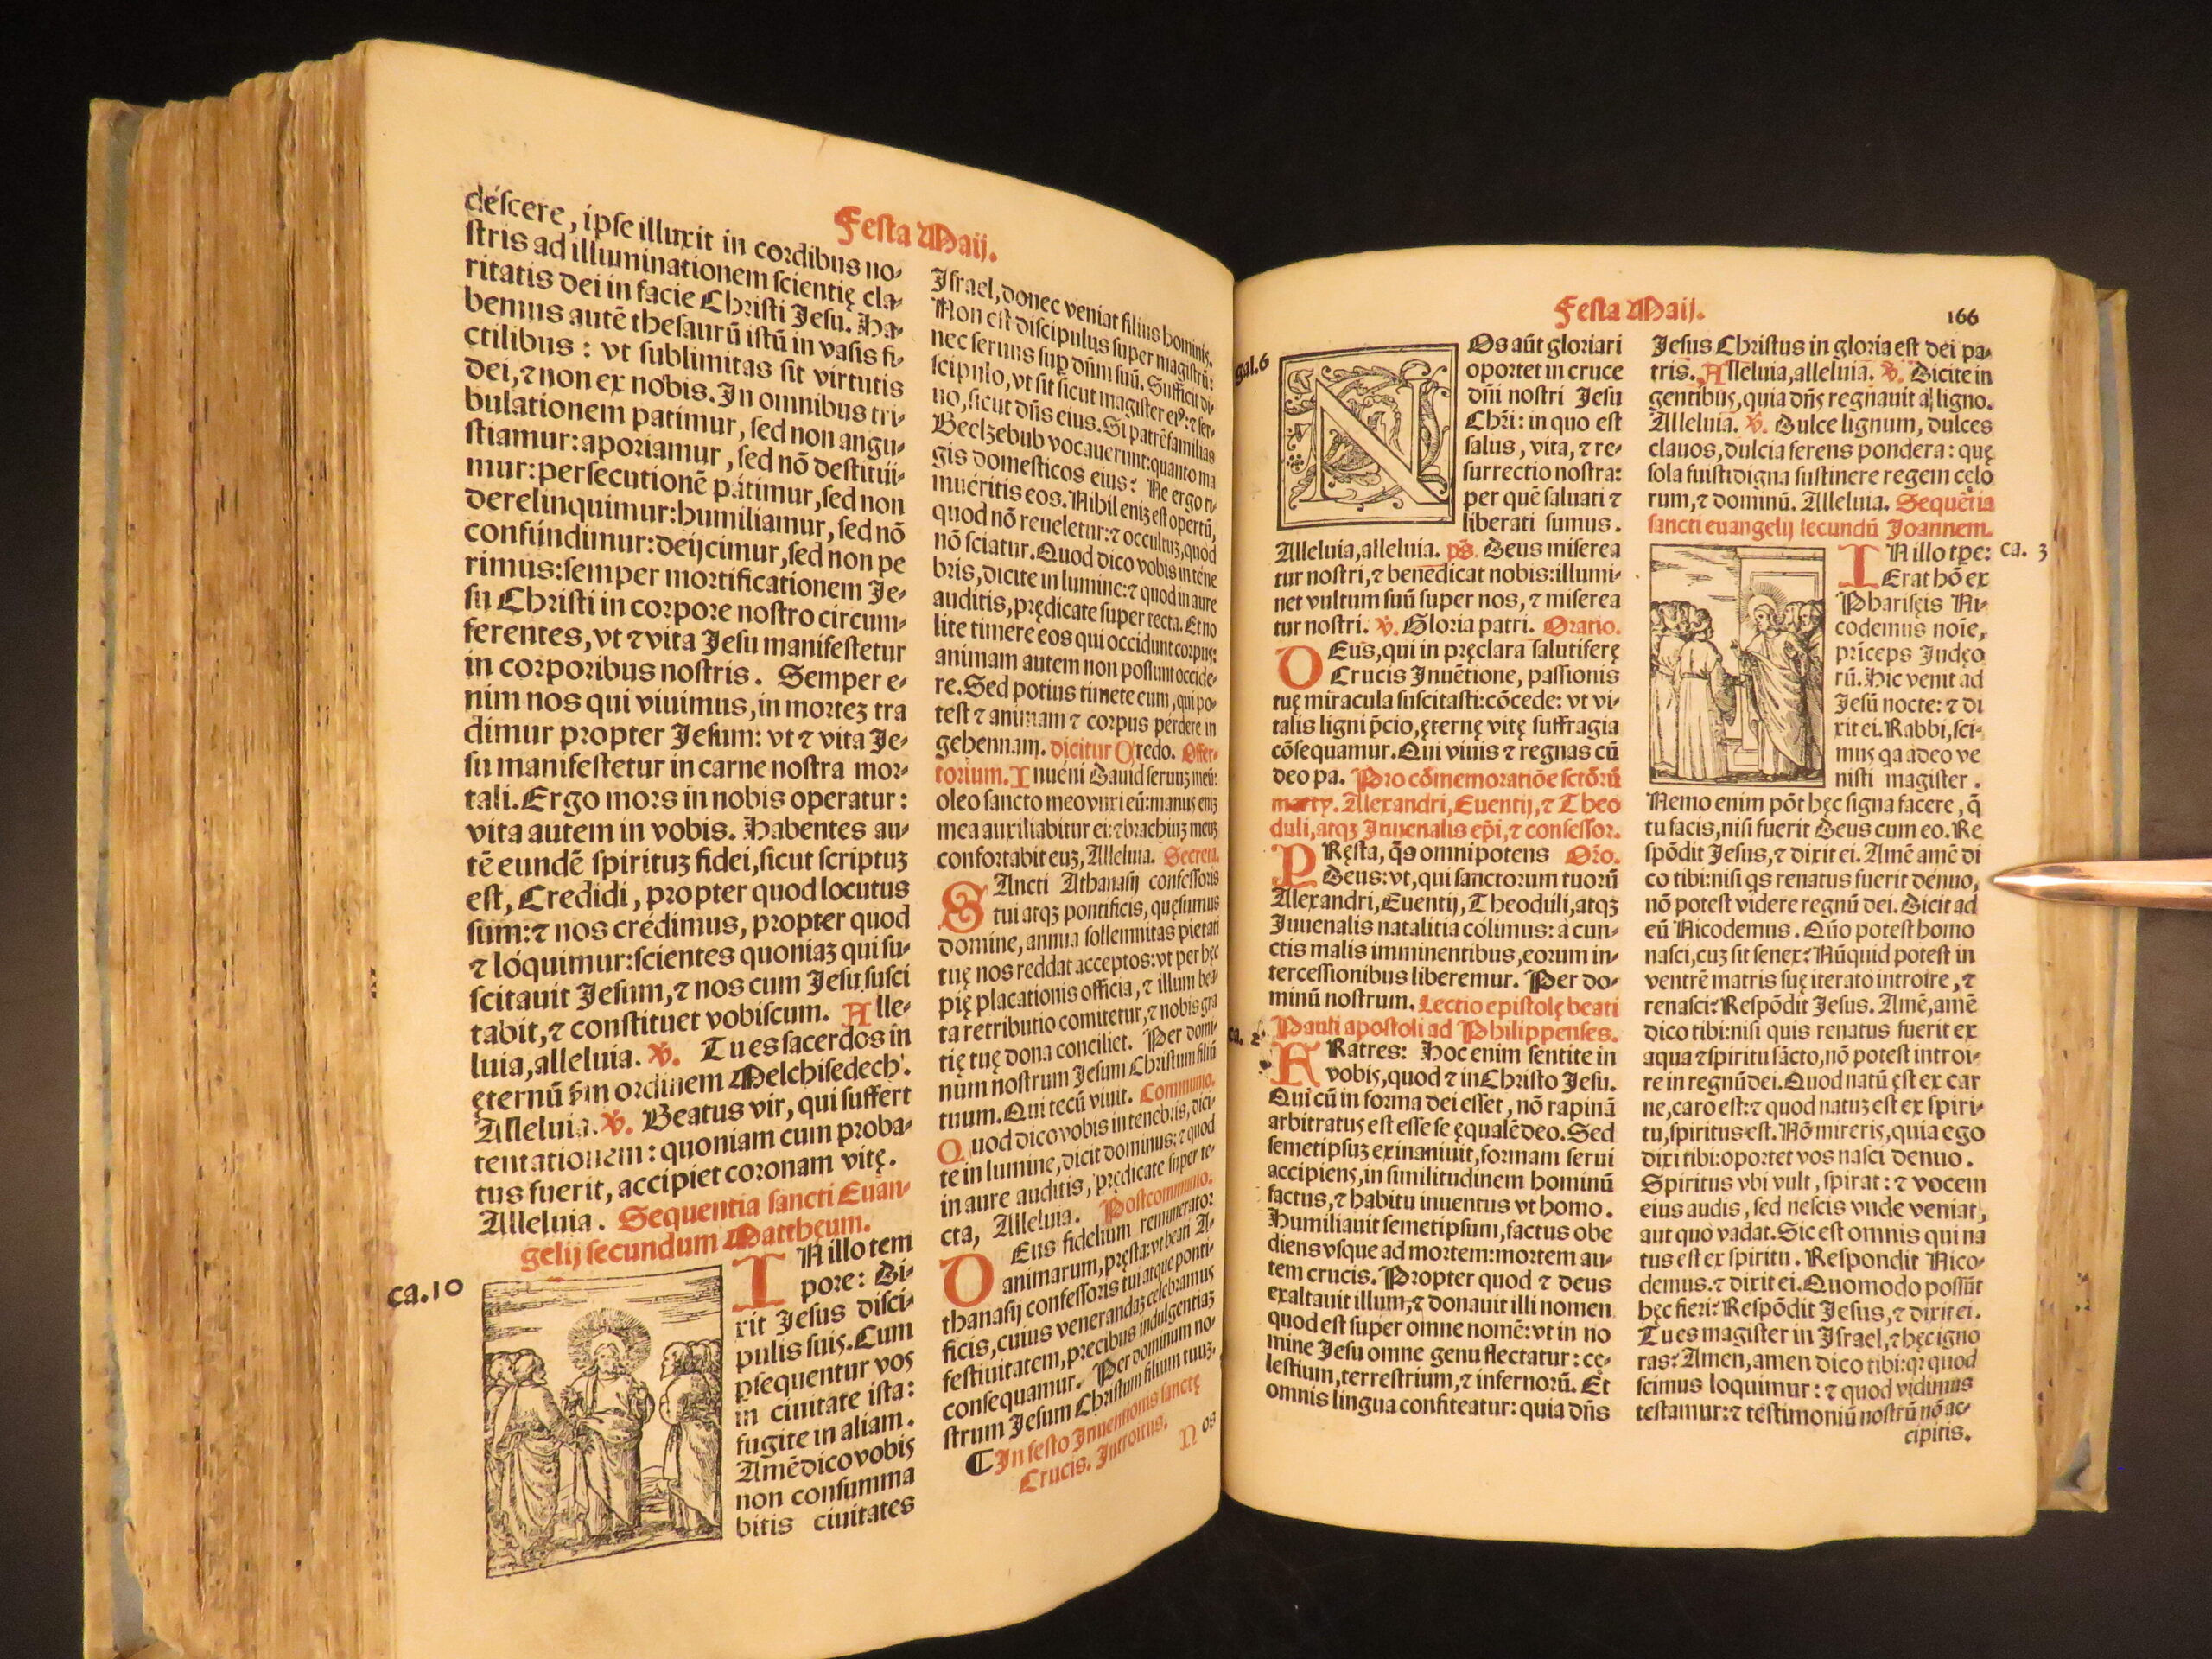 Festa Maij.
déscere, ipse illuxit in cordibus no-
stris ad illuminationem scientię cla-
ritatis dei in facie Christi Jesu. Ha-
bemus autē thesaurū istū in vasis fi-
ctilibus: vt sublimitas sit virtutis
dei, ⁊ non ex nobis. In omnibus tri-
bulationem patimur, sed non angu-
stiamur: aporiamur, sed nō destitui-
mur: persecutionē pátimur, sed non
derelinquimur: humiliamur, sed nō
confúndimur: deijcimur, sed non pe
rimus: semper mortificationem Je-
su Christi in corpore nostro circum-
ferentes, vt ⁊ vita Jesu manifestetur
in corporibus nostris. Semper e-
nim nos qui viuimus, in morteʒ tra
dimur propter Jesum: vt ⁊ vita Je-
su manifestetur in carne nostra mor-
tali. Ergo mors in nobis operatur:
vita autem in vobis. Habentes au-
tē eundē spirituʒ fidei, sicut scriptuʒ
est, Credidi, propter quod locutus
sum: ⁊ nos crédimus, propter quod
⁊ lóquimur: scientes quoniaʒ qui su-
scitauit Jesum, ⁊ nos cum Jesu susci
tabit, ⁊ constituet vobiscum. Alle-
luia, alleluia. ℣. Tu es sacerdos in
ęternū ßm ordinem Melchisedech.
Alleluia. ℣. Beatus vir, qui suffert
tentationem: quoniam cum proba-
tus fuerit, accipiet coronam vitę.
Alleluia. Sequentia sancti Euan-
gelij secundum Mattheum.
ca.10
IN illo tem
pore: Di-
xit Jesus disci-
pulis suis. Cum
ꝑsequentur vos
in ciuitate ista:
fugite in aliam.
Amē dico vobis
non consumma
bitis ciuitates
Israel, donec veniat filius hominis.
Non est discipulus super magistrū:
nec seruus suꝑ dñm suū. Sufficit di-
scipulo, vt sit sicut magister eiꝰ: ⁊ ser-
uo, sicut dñs eius. Si patrēfamilias
Beelzebub vocauerunt: quanto ma
gis domesticos eius? Ne ergo ti-
muéritis eos. Nihil eniʒ est opertū,
quod nō reueletur: ⁊ occultuʒ, quod
nō sciatur. Quod dico vobis in tene
bris, dicite in lumine: ⁊ quod in aure
auditis, prędicate super tecta. Et no
lite timere eos qui occidunt corpus:
animam autem non possunt occide-
re. Sed potius timete eum, qui po-
test ⁊ animam ⁊ corpus perdere in
gehennam. dicitur Credo. Offer-
torium. Inuéni Dauid seruuʒ meū:
oleo sancto meo vnxi eū: manus eniʒ
mea auxiliabitur ei: ⁊ brachiuʒ meuʒ
confortabit euʒ, Alleluia. Secreta.
SAncti Athanasij confessoris
tui atqʒ pontificis, quęsumus
domine, annua sollemnitas pietati
tuę nos reddat acceptos: vt per hęc
pię placationis officia, ⁊ illum bea-
ta retributio comitetur, ⁊ nobis gra
tię tuę dona conciliet. Per domi-
num nostrum Jesum Christum filiū
tuum. Qui tecū viuit. Communio.
Quod dico vobis in tenebris, dici-
te in lumine, dicit dominus: ⁊ quod
in aure auditis, prędicate super te-
cta, Alleluia. Postcommunio.
DEus fidelium remunerator
animarum, pręsta: vt beati A-
thanasij confessoris tui atque ponti-
ficis, cuius venerandaʒ celebramus
festiuitatem, precibus indulgentiaʒ
consequamur. Per dominum no-
strum Jesum Christum filium tuuʒ.
¶ In festo Inuentionis sanctę
Crucis. Introitus. Nos
Festa Maij.
166
Gal.6
NOs aūt gloriari
oportet in cruce
dñi nostri Jesu
Chři: in quo est
salus, vita, ⁊ re-
surrectio nostra:
per quē saluati ⁊
liberati sumus.
Alleluia, alleluia. ps̄. Deus miserea
tur nostri, ⁊ benedicat nobis: illumi-
net vultum suū super nos, ⁊ miserea
tur nostri. ℣. Gloria patri. Oratio.
DEus, qui in pręclara salutiferę
Crucis Inuētione, passionis
tuę miracula suscitasti: cōcede: vt vi-
talis ligni p̄cio, ęternę vitę suffragia
cōsequamur. Qui viuis ⁊ regnas cū
deo pa. Pro cōmemoratiōe sctōrū
marty. Alexandri, Euentij, ⁊ Theo
duli, atqʒ Iuuenalis epī, ⁊ confessor.
PRęsta, q̄s omnipotens Orō.
Deus: vt, qui sanctorum tuorū
Alexandri, Euentij, Theoduli, atqʒ
Juuenalis natalitia cólimus: a cun-
ctis malis imminentibus, eorum in-
tercessionibus liberemur. Per do-
minū nostrum. Lectio epistolę beati
Pauli apostoli ad Philippenses.
ca. 2.
FRatres: Hoc enim sentite in
vobis, quod ⁊ in Christo Jesu.
Qui cū in forma dei esset, nō rapinā
arbitratus est esse se ęqualē deo. Sed
semetipsuʒ exinaniuit, formam serui
accipiens, in similitudinem hominū
factus, ⁊ habitu inuentus vt homo.
Humiliauit semetipsum, factus obe
diens vsque ad mortem: mortem au-
tem crucis. Propter quod ⁊ deus
exaltauit illum, ⁊ donauit illi nomen
quod est super omne nomē: vt in no
mine Jesu omne genu flectatur: cę-
lestium, terrestrium, ⁊ infernorū. Et
omnis lingua confiteatur: quia dñs
Jesus Christus in gloria est dei pa-
tris. Alleluia, alleluia. ℣. Dicite in
gentibus, quia dñs regnauit a ligno.
Alleluia. ℣. Dulce lignum, dulces
clauos, dulcia ferens pondera: quę
sola fuisti digna sustinere regem cęlo
rum, ⁊ dominū. Alleluia. Sequētia
sancti euangelij secundū Joannem.
ca. 3
IN illo tꝑe:
Erat hō ex
Pharisęis Ni-
codemus noīe,
princeps Iudęo
rū. Hic venit ad
Jesū nocte: ⁊ di
xit ei. Rabbi, sci-
mus qa a deo ve
nisti magister.
Nemo enim pōt hęc signa facere, q̄
tu facis, nisi fuerit Deus cum eo. Re
spōdit Jesus, ⁊ dixit ei. Amē amē di
co tibi: nisi qs renatus fuerit denuo,
nō potest videre regnū dei. Dicit ad
eū Nicodemus. Quō potest homo
nasci, cuʒ sit senex? Nūquid potest in
ventrē matris suę iterato introire, ⁊
renasci? Respōdit Jesus. Amē, amē
dico tibi: nisi quis renatus fuerit ex
aqua ⁊ spiritu sācto, nō potest introi-
re in regnū dei. Quod natū est ex car
ne, caro est: ⁊ quod natuʒ est ex spiri-
tu, spiritus est. Nō mireris, quia ego
dixi tibi: oportet vos nasci denuo.
Spiritus vbi vult, spirat: ⁊ vocem
eius audis, sed nescis vnde veniat,
aut quo vadat. Sic est omnis qui na
tus est ex spiritu. Respondit Nico-
demus. ⁊ dixit ei. Quomodo possūt
hęc fieri? Respōdit Jesus, ⁊ dixit ei.
Tu es magister in Israel, ⁊ hęc igno
ras? Amen, amen dico tibi: qꝛ quod
scimus loquimur: ⁊ quod vidimus
testamur: ⁊ testimoniū nostrū nō ac-
cipitis.